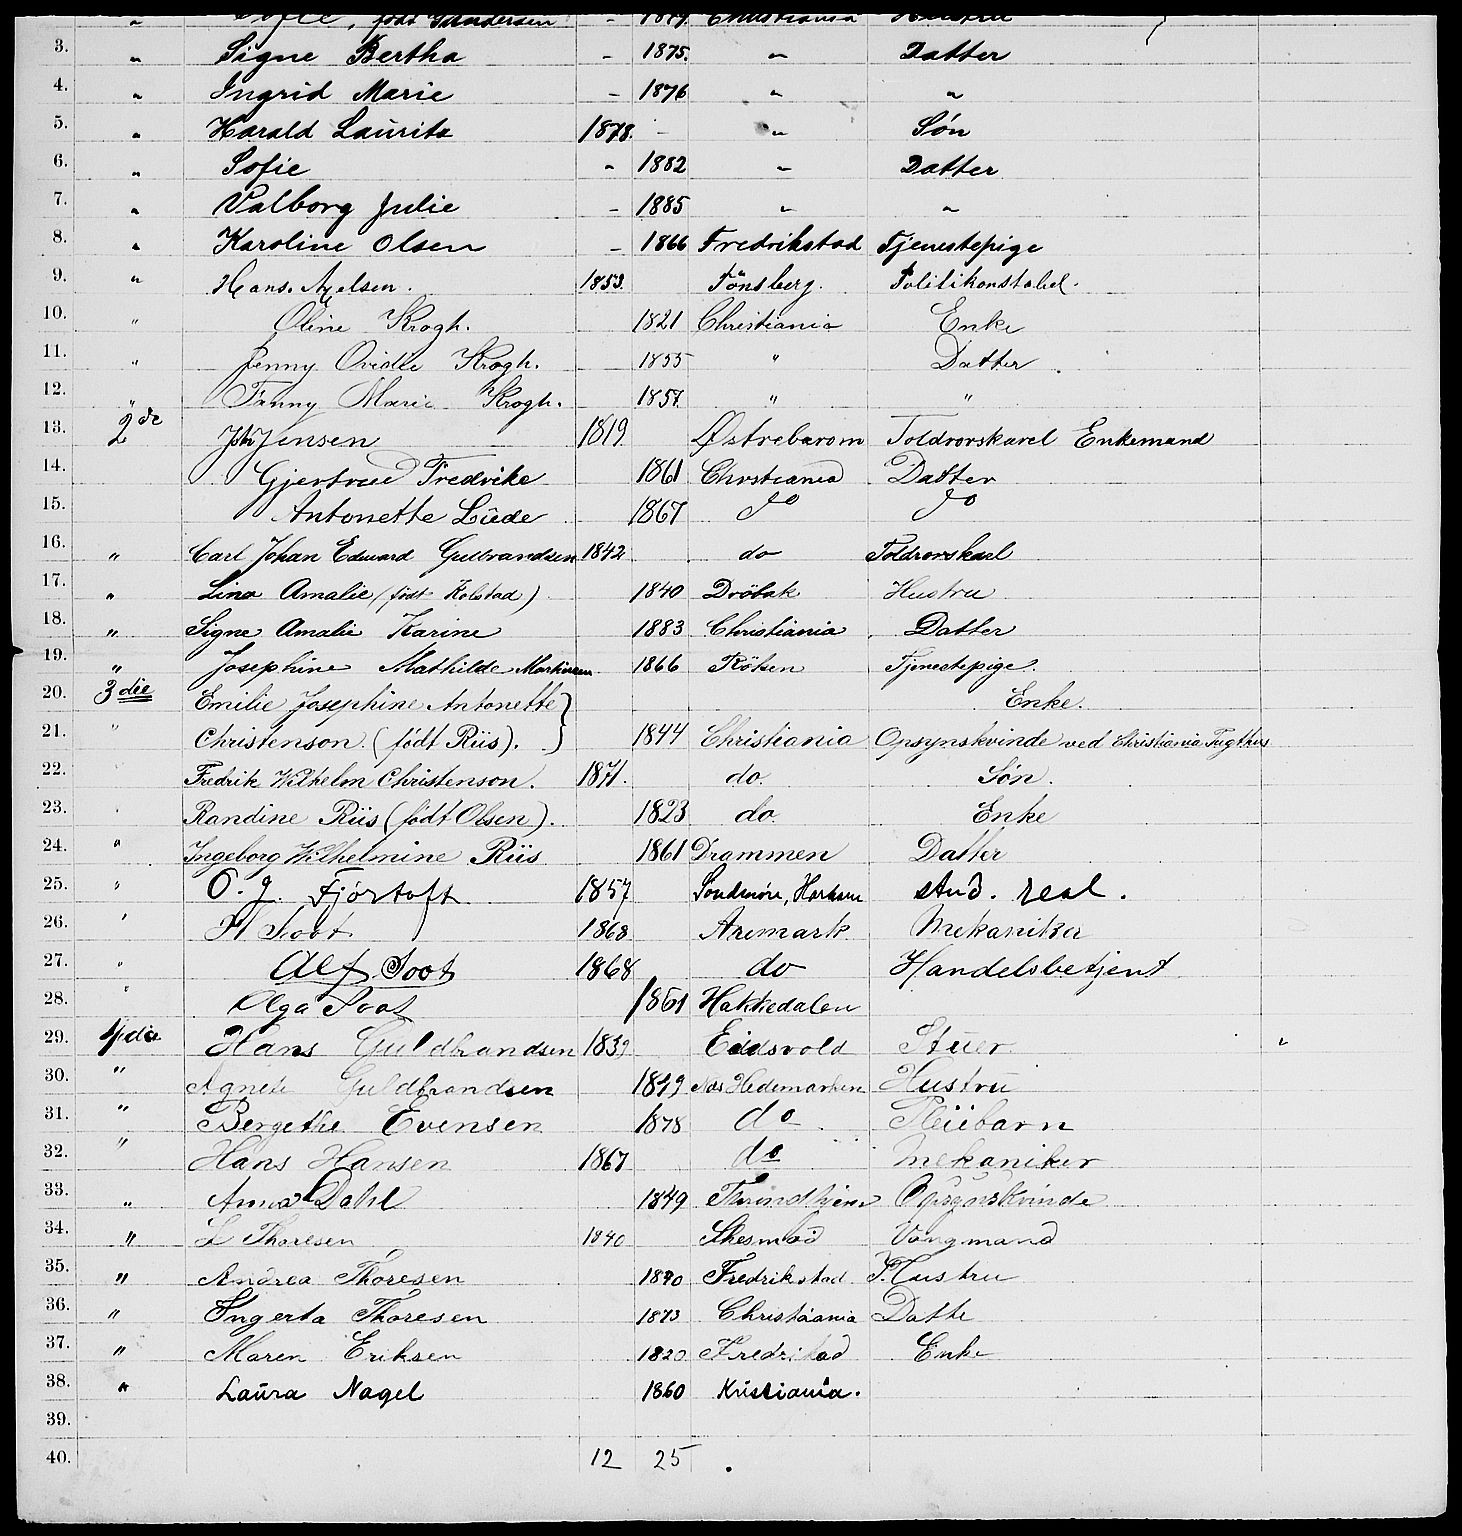 " Sofie, født Gundersen - Christiania Hustru
3. " Signe Bertha - 1875. " Datter
4. " Ingrid Marie - 1876 " "
5. " Harald Laurits 1878. - " Søn
6. " Sofie - 1882 " Datter
7. " Valborg Julie - 1885 " "
8. " Karoline Olsen - 1866 Fredrikstad Tjenestepige
9. " Hans. 1853. Tönsberg. Politikonstabel.
10. " Oline Krogh. 1821 Christiania Enke
11. " Jenny Ovidie Krogh. 1855 " Datter.
12. " Fanny Marie Krogh. 1857. " "
13. 2de Jensen 1819 Toldrorskarel Enkemand
14. Gjertrud Fredrike 1861 Chrstiania Datter
15. Antonette Lüde 1867 do do
16. " Carl Johan Edward Gulbrandsen 1842 do Toldrorskarl
17. " Lina Amalie (født Kolstad) 1840 Dröbak Hustru
18. " Signe Amalie Karine 1883 Christiania Datter
19. " Josephine Mathilde Martinsen 1866 Röken Tjenestepige.
20. 3die Emilie Josephine Antonette } Enke.
21. " Christenson. (født Riis). 1844 Christiania Opsynskvinde ved Christiania Tugthus
22. Fredrik Wilhelm Christenson. 1871. do. Søn.
23. " Randine Riis (født Olsen). 1823 do. Enke
24. " Ingeborg Wilhelmine Riis 1861 Drammen Datter
25. " O. J. Fjørtoft 1857 Söndmöre, stud. real.
26. " H Soot 1868 Aremark Mekaniker
27. " Alf Soot 1868 do Handelsbetjent
28. " Olga Soot 1861 Hakkedalen
29. 4die Hans Guldbrandsen 1839 Eidsvold Stuer. "
30. " Agnete Guldbrandsen 1849 Næs Hedemarken Hustru
31. " Bergethe Evensen 1878 do Pleiebarn
32. " Hans Hansen 1867 do Mekaniker
33. " Anna Dahl 1849 Throndhjem Opsynskvinde
34. " L Thoresen 1840 Vongmand
35. " Andrea Thoresen 1840 Fredrikstad Hustru
36. " Ingerta Thoresen 1873 Christiania Datte
37. " Maren Eriksen 1820 Enke
38. " Laura Nagel 1860 Kristiania.
39.
40. 12 25